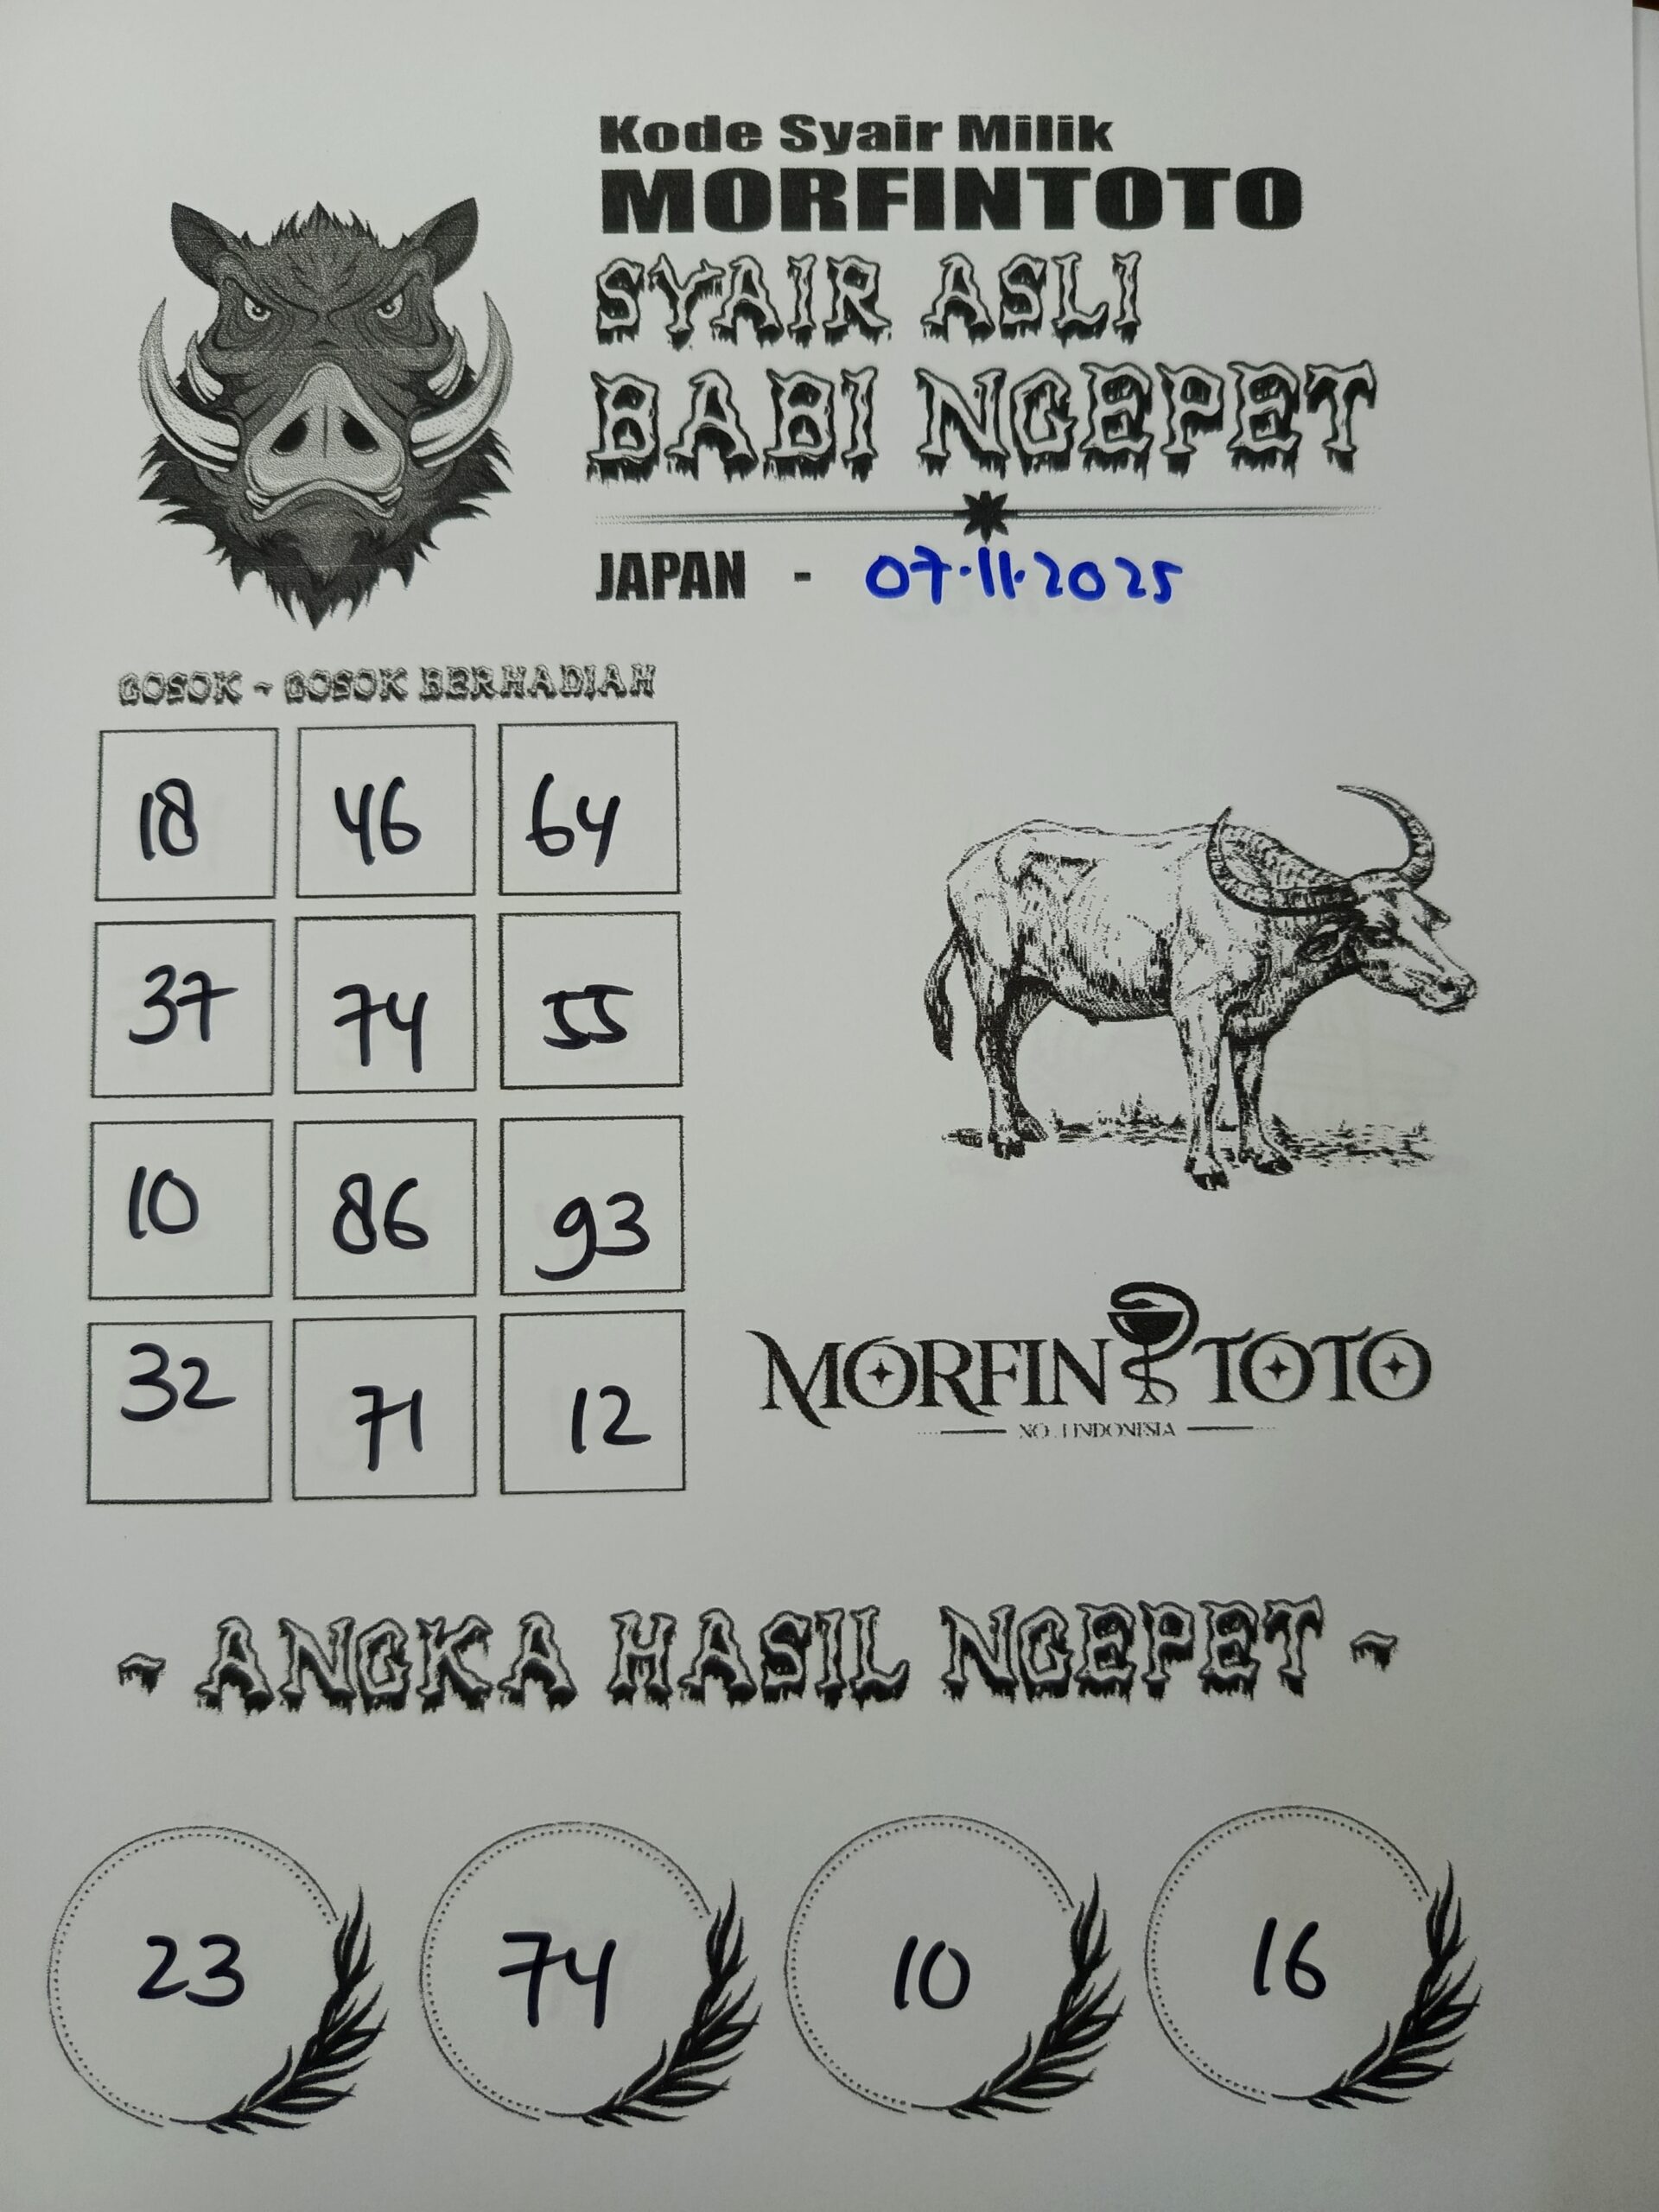 Kode Syair Milik
MORFINTOTO
SYAIR ASLI
BABI NGEPET
JAPAN - 07.11.2025
GOSOK - GOSOK BERHADIAH
18 46 64
37 74 55
10 86 93
32 71 12
MORFIN TOTO
NO.1 INDONESIA
~ ANGKA HASIL NGEPET ~
23 74 10 16